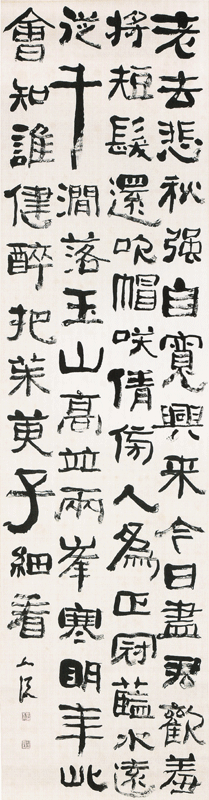 老去悲秋强自寬興来今日盡君歡羞
將短髮還吹帽咲倩傍人為正冠藍水遠
從千澗落玉山高並兩峯寒明年此
會知誰健醉把茱萸子細看